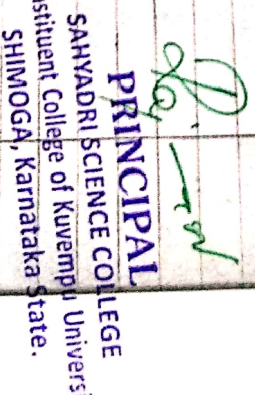 PRINCIPAL
SAHYADRI SCIENCE COLLEGE
stituent College of Kuvempu Universi
SHIMOGA, Karnataka State.